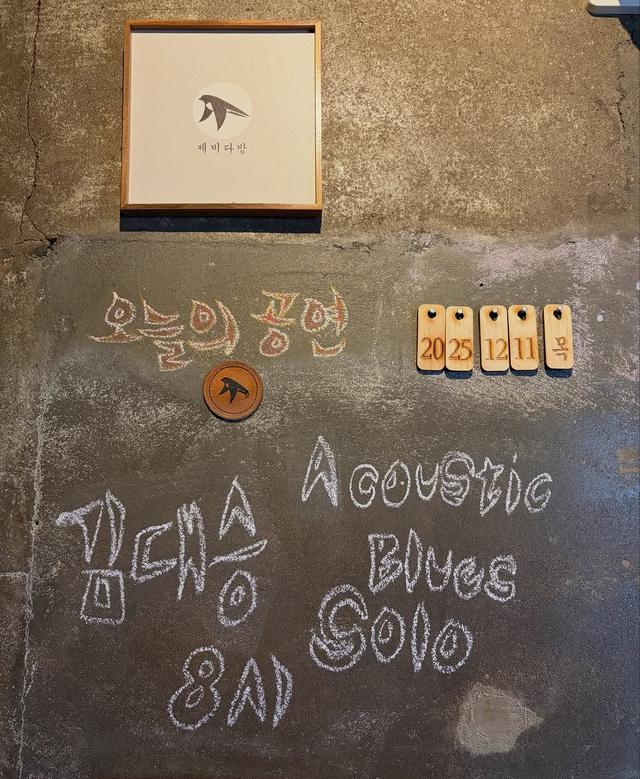 제비다방
오늘의 공연
20 25 12 11 목
김대승
Acoustic
Blues
Solo
8시